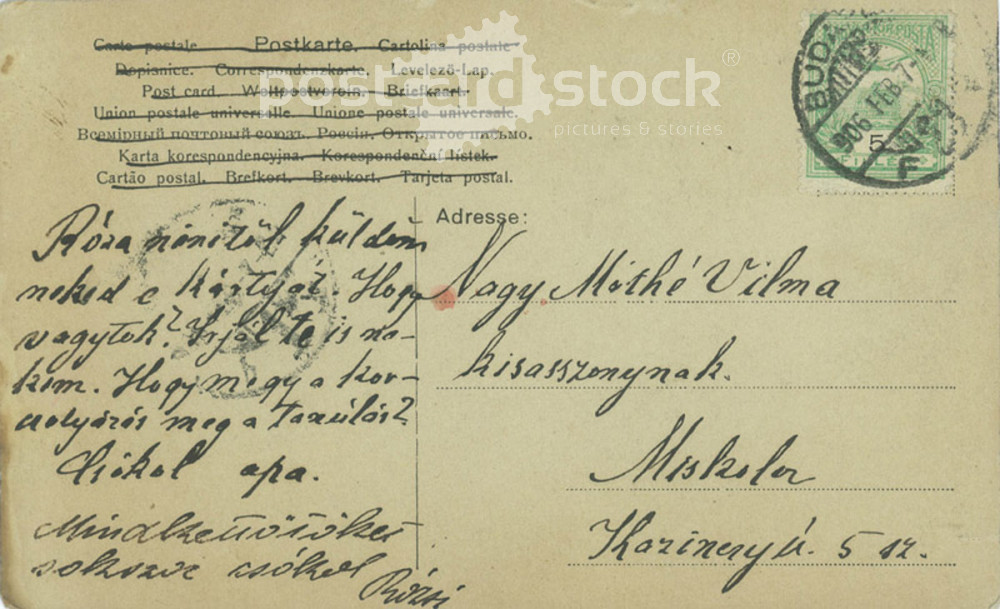 Carte postale. Postkarte. Cartolina postale
Dopisnice. Correspondenzkarte. Levelező-Lap.
Post card. Weltpostverein. Briefkaart.
Union postale universelle. Unione postale universale.
Всемірный почтовый союзъ. Россія. Открытое письмо.
Karta korespondencyjna. Korespondenční lístek.
Cartão postal. Brefkort. Brevkort. Tarjeta postal.
postcardstock®
pictures & stories
MAGYAR POSTA
5
FILLÉR
BUDAPEST
906 FEB. 7.
F
Róza nénitől küldöm
neked e kártyát. Hogy
vagytok? Írjál te is ne-
kem. Hogy megy a kor-
csolyázás meg a tanulás?
Csókol apa.
Mindkettőtöket
sokszor csókol
Rózsi
Adresse:
Nagy Máthé Vilma
kisasszonynak.
Miskolcz
Kazinczy ú. 5 sz.